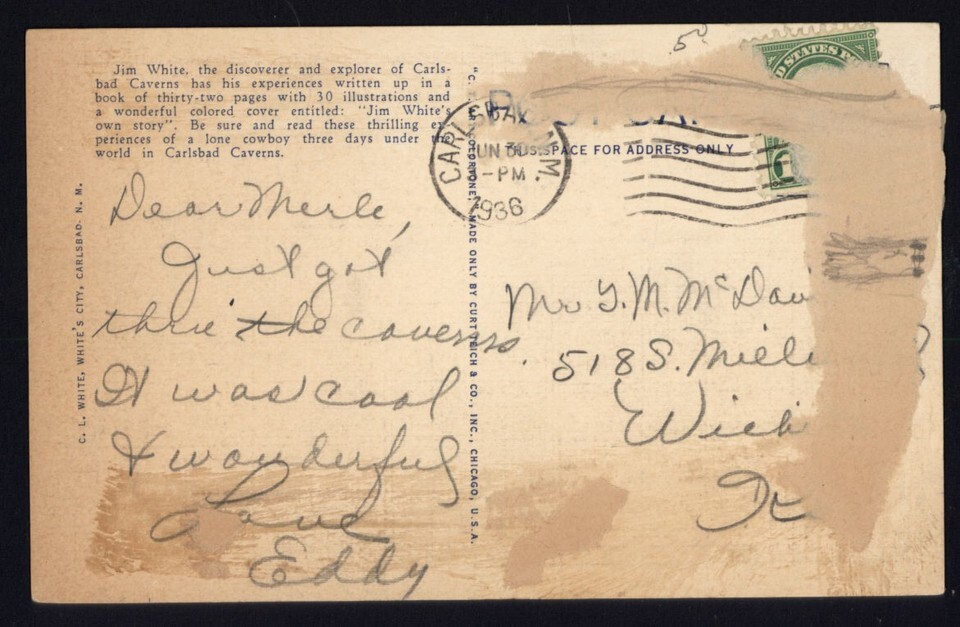 Jim White, the discoverer and explorer of Carls-
bad Caverns has his experiences written up in a
book of thirty-two pages with 30 illustrations and
a wonderful colored cover entitled: "Jim White's
own story". Be sure and read these thrilling ex-
periences of a lone cowboy three days under the
world in Carlsbad Caverns.
C. L. WHITE, WHITE'S CITY, CARLSBAD N. M.
Dear Merle,
Just got
thrie the caverns.
It was cool
& wonderful
Love
Eddy
MADE ONLY BY CURT TEICH & CO., INC., CHICAGO, U.S.A.
5¢
D STATES P
CARLSBAD
N.M.
JUN 30
-PM
1936
SPACE FOR ADDRESS ONLY
Mr
M. McDav
518 S.
Wich